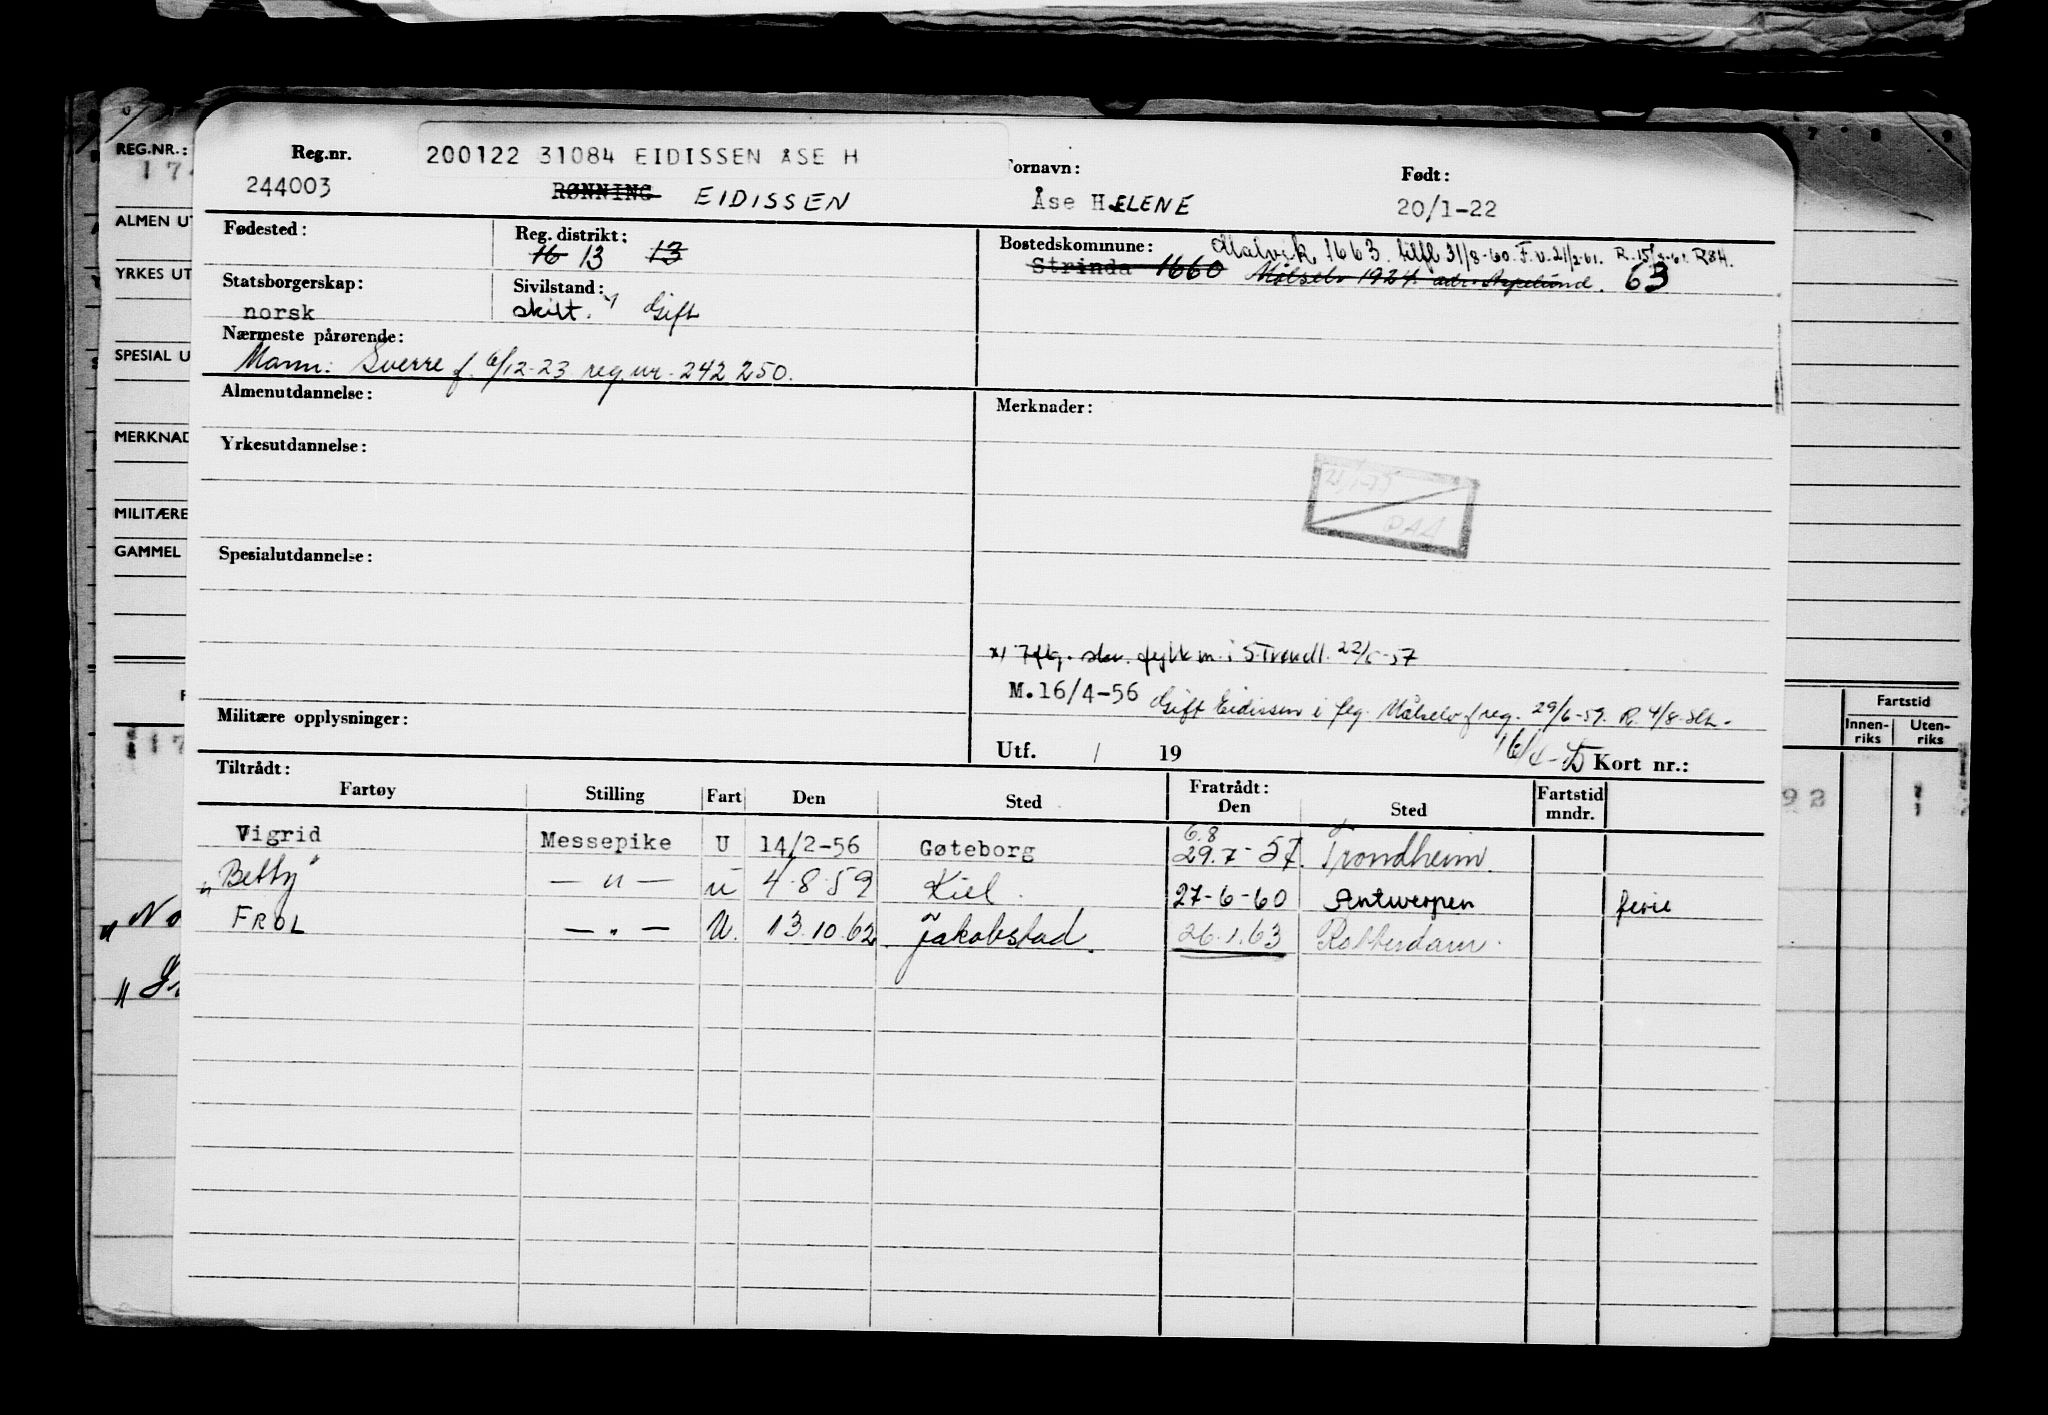 Reg.nr.
244003
200122 31084 EIDISSEN ÅSE H
RØNNING EIDISSEN
ornavn:
Åse HELENE
Født:
20/1-22
Fødested:
Reg. distrikt:
16 13 13
Bostedskommune: Malvik 1663. tilfl 31/8-60. F.v. 21/2-61. R.
Strinda 1660 Målselv 1924. 63
Statsborgerskap:
norsk
Sivilstand:
skilt. Gift
Nærmeste pårørende:
Mann: Sverre f. 6/12-23 reg.nr. 242 250.
Almenutdannelse:
Merknader:
Yrkesutdannelse:
Spesialutdannelse:
x) Iflg. skr. fylk m. i S Trøndl.
M.16/4-56 Gift Eidissen i flg. Målselv f reg. 29/6-59. R. 4/8
Militære opplysninger:
Utf. / 19
Kort nr.:
Tiltrådt:
Fratrådt:
Fartøy Stilling Fart Den Sted Den Sted Fartstid mndr.
Vigrid Messepike U 14/2-56 Gøteborg 6.8 29.7-57. Trondheim.
"Betty" — " — U 4.8.59 Kiel. 27-6-60 Antwerpen ferie
FROL — " — U. 13.10.62. Jakobstad. 26.1.63 Rotterdam.
REG.NR.:
ALMEN UT
YRKES UT
SPESIAL U
MERKNAD
MILITÆRE
GAMMEL
7 8 9
Fartstid
Innen-riks
Uten-riks